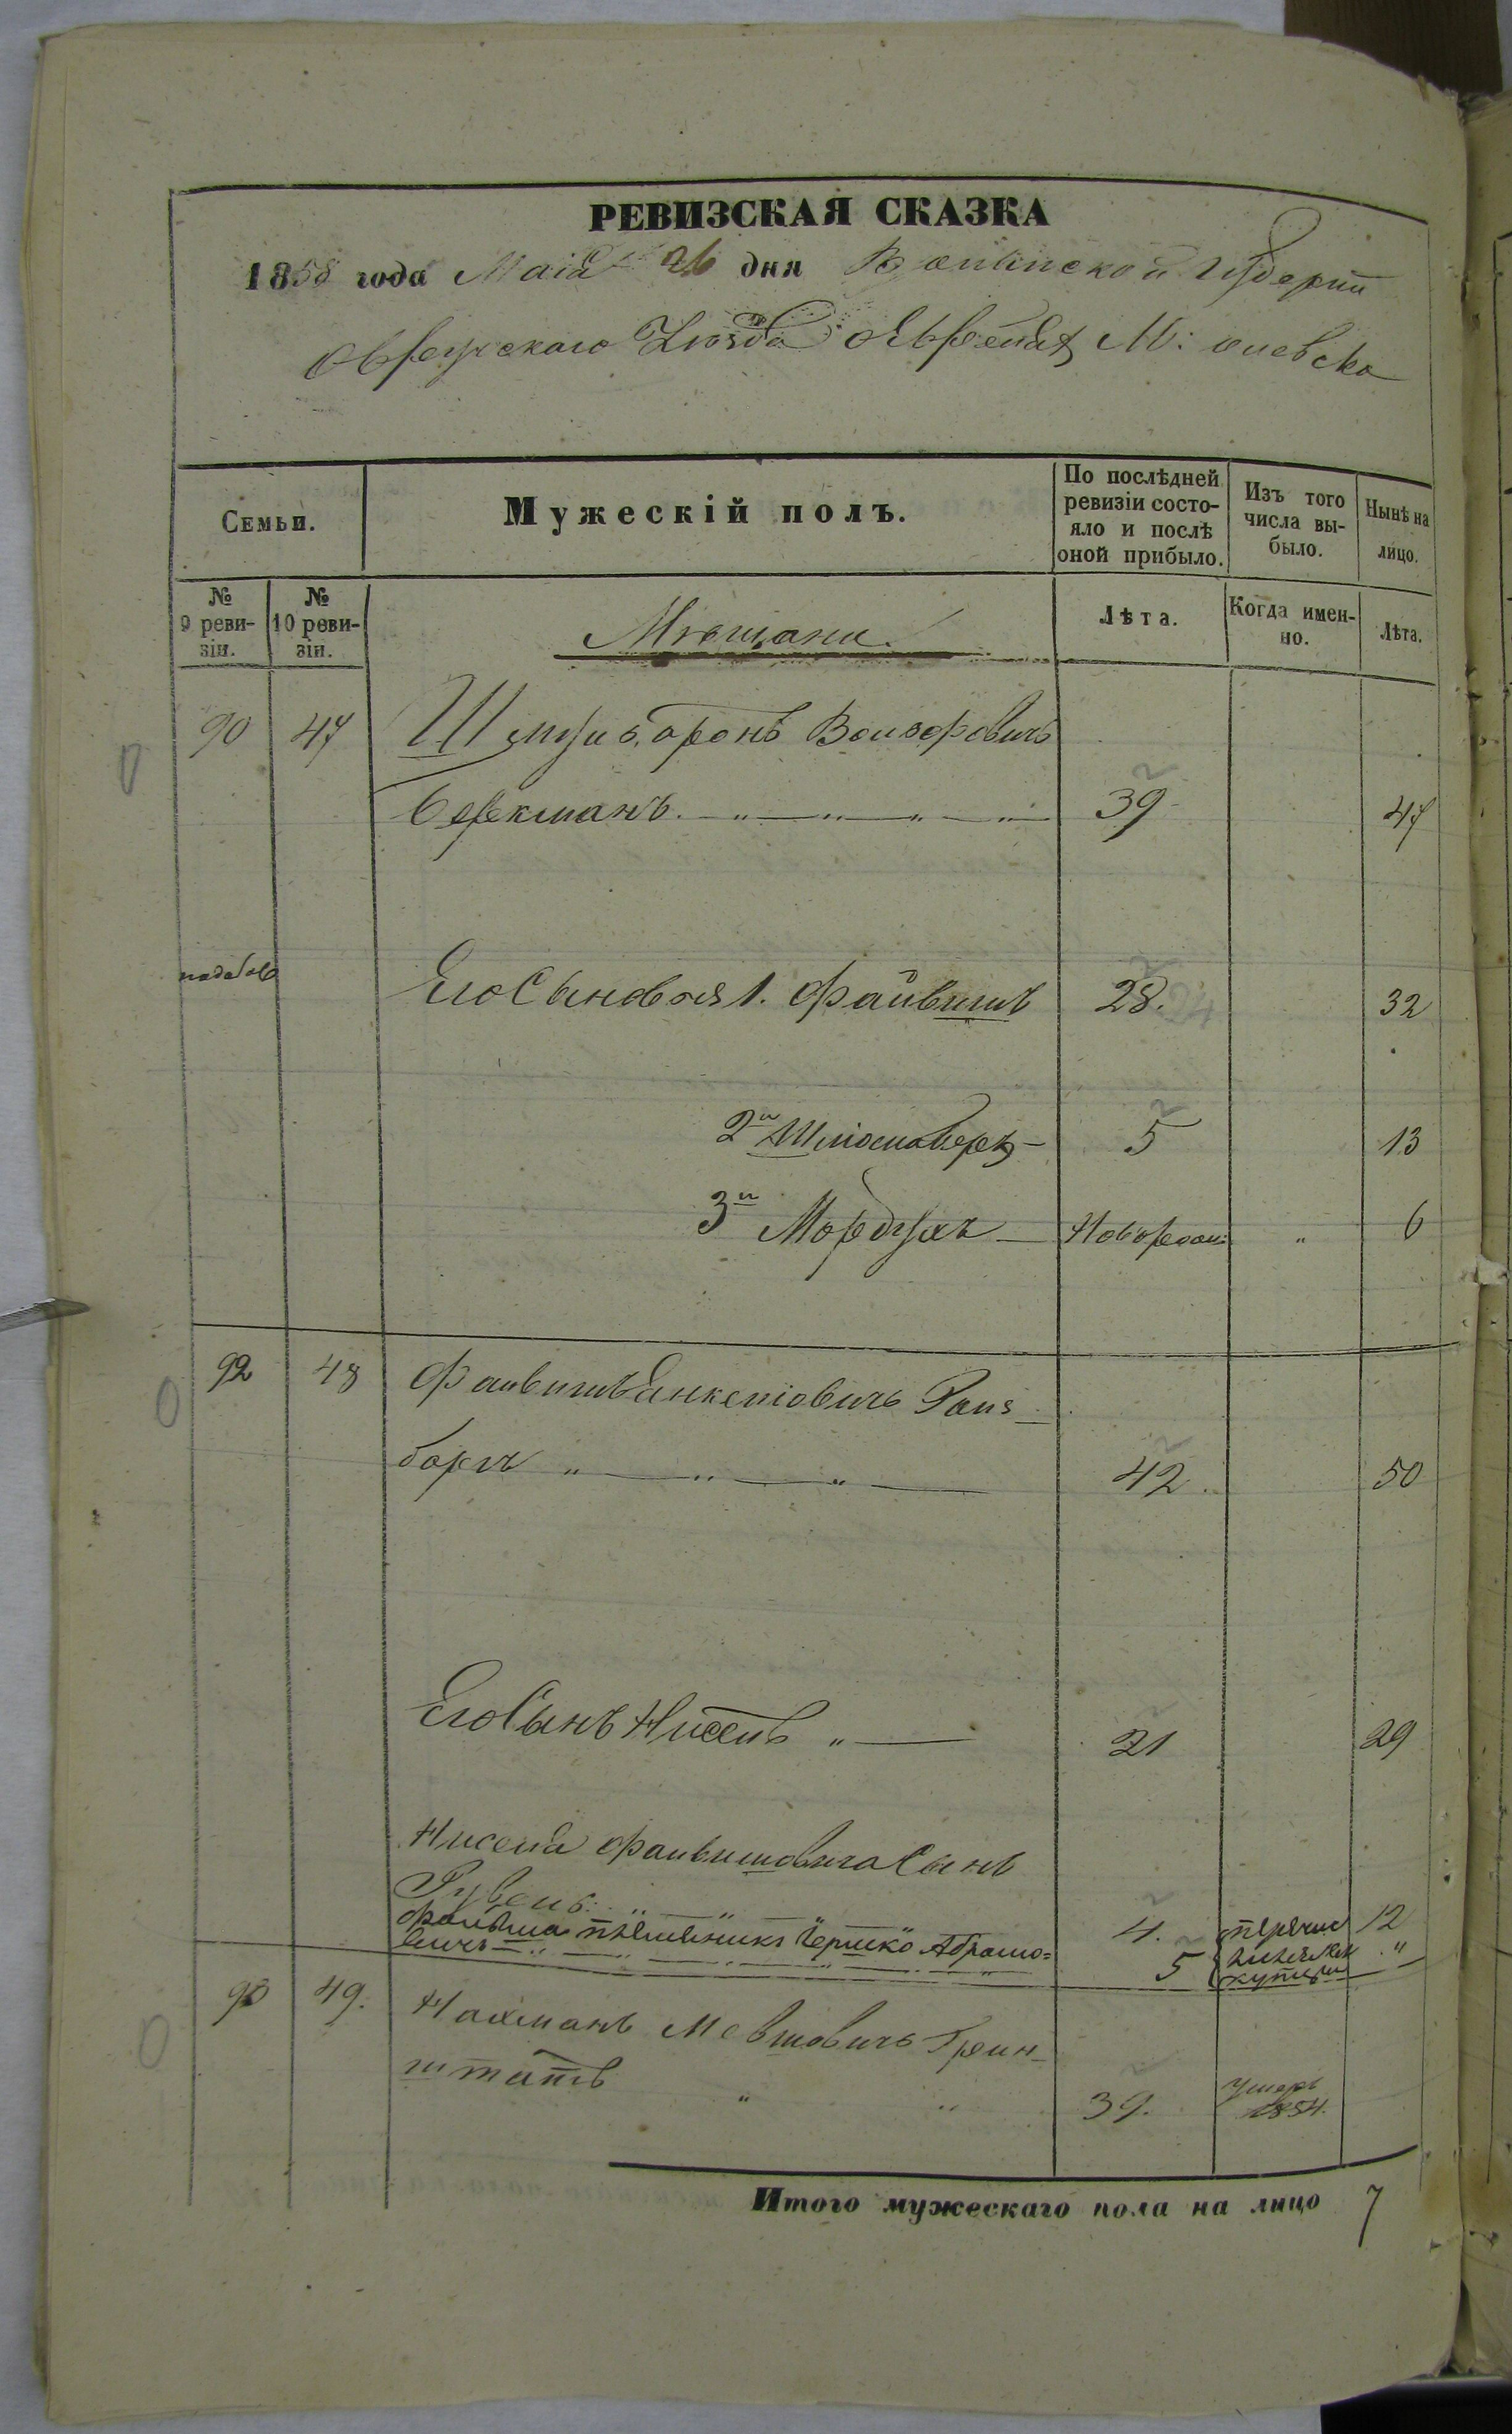 РЕВИЗСКАЯ СКАЗКА
1858 года Маія 26 дня Волынской Губерніи
Овручскаго Уѣзда о Евреяхъ М: Олевска
Семьи.
Мужескій полъ.
По послѣдней ревизіи состо-
яло и послѣ
оной прибыло.
Изъ того
числа вы-
было.
Нынѣ на
лицо.
№
9 реви-
зіи.
№
10 реви-
зіи.
Мѣщани.
Лѣта.
Когда имен-
но.
Лѣта.
90 47
Беркманъ. 39 47
Его Сыновья 1. Файвишъ 28. 32
2й Шлiомаберъ 5 13
3й Мордухъ Новорожд: " 6
92 48 Файвишъ Янкелiовичъ Роиз-
бергъ " " " 42. 50
Его Сынъ Нисенъ " 21 29
Нисена Файвишовича Сынъ
Рувенъ " " " 4. 12
Файвиша племяникъ Гершко Абрамо=
вичъ 5 "
49. Нахманъ Мевшовичъ Грин-
штатъ " " 39. умеръ
1854.
Итого мужескаго пола на лицо 7